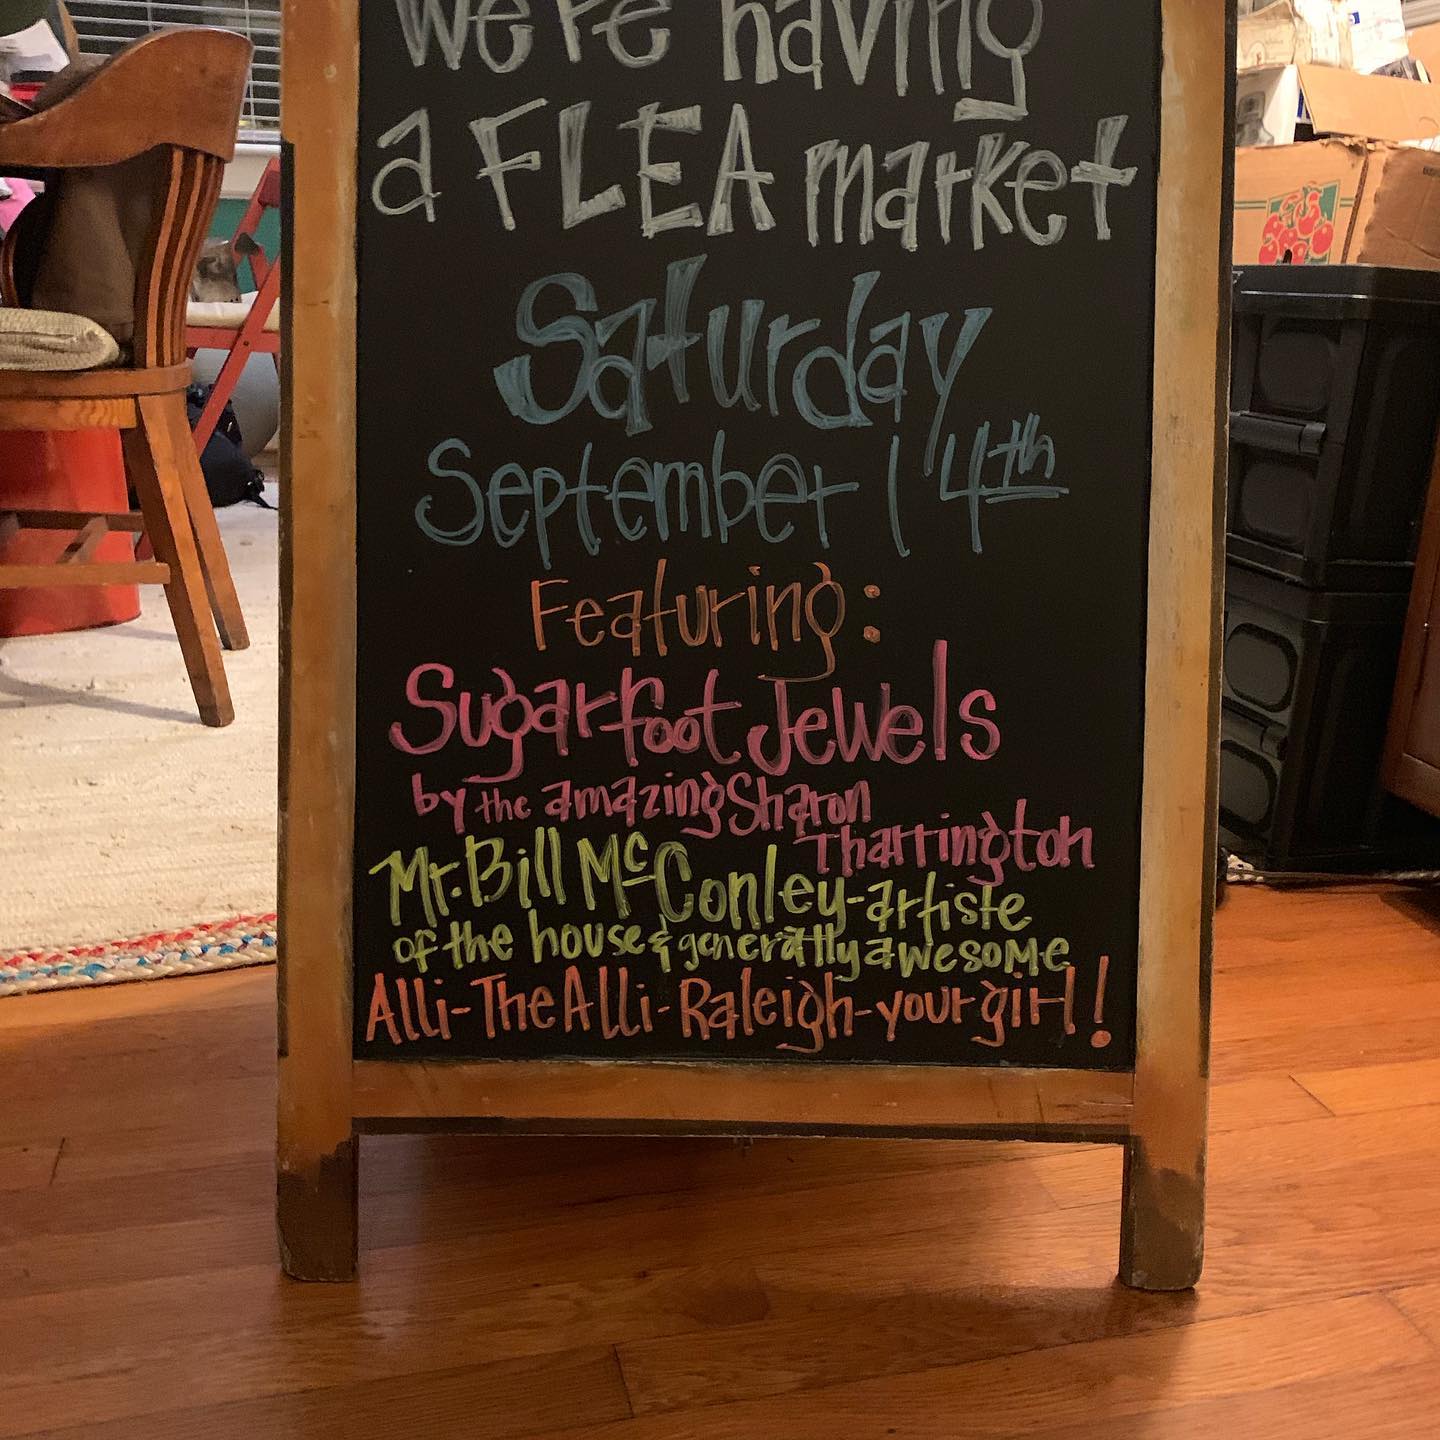 we're having
a FLEA market
Saturday
September 14th
Featuring:
Sugarfoot Jewels
by the amazing Sharon
Tharrington
Mr. Bill McConley-artiste
of the house & generally awesome
Alli-The Alli-Raleigh-your girl!